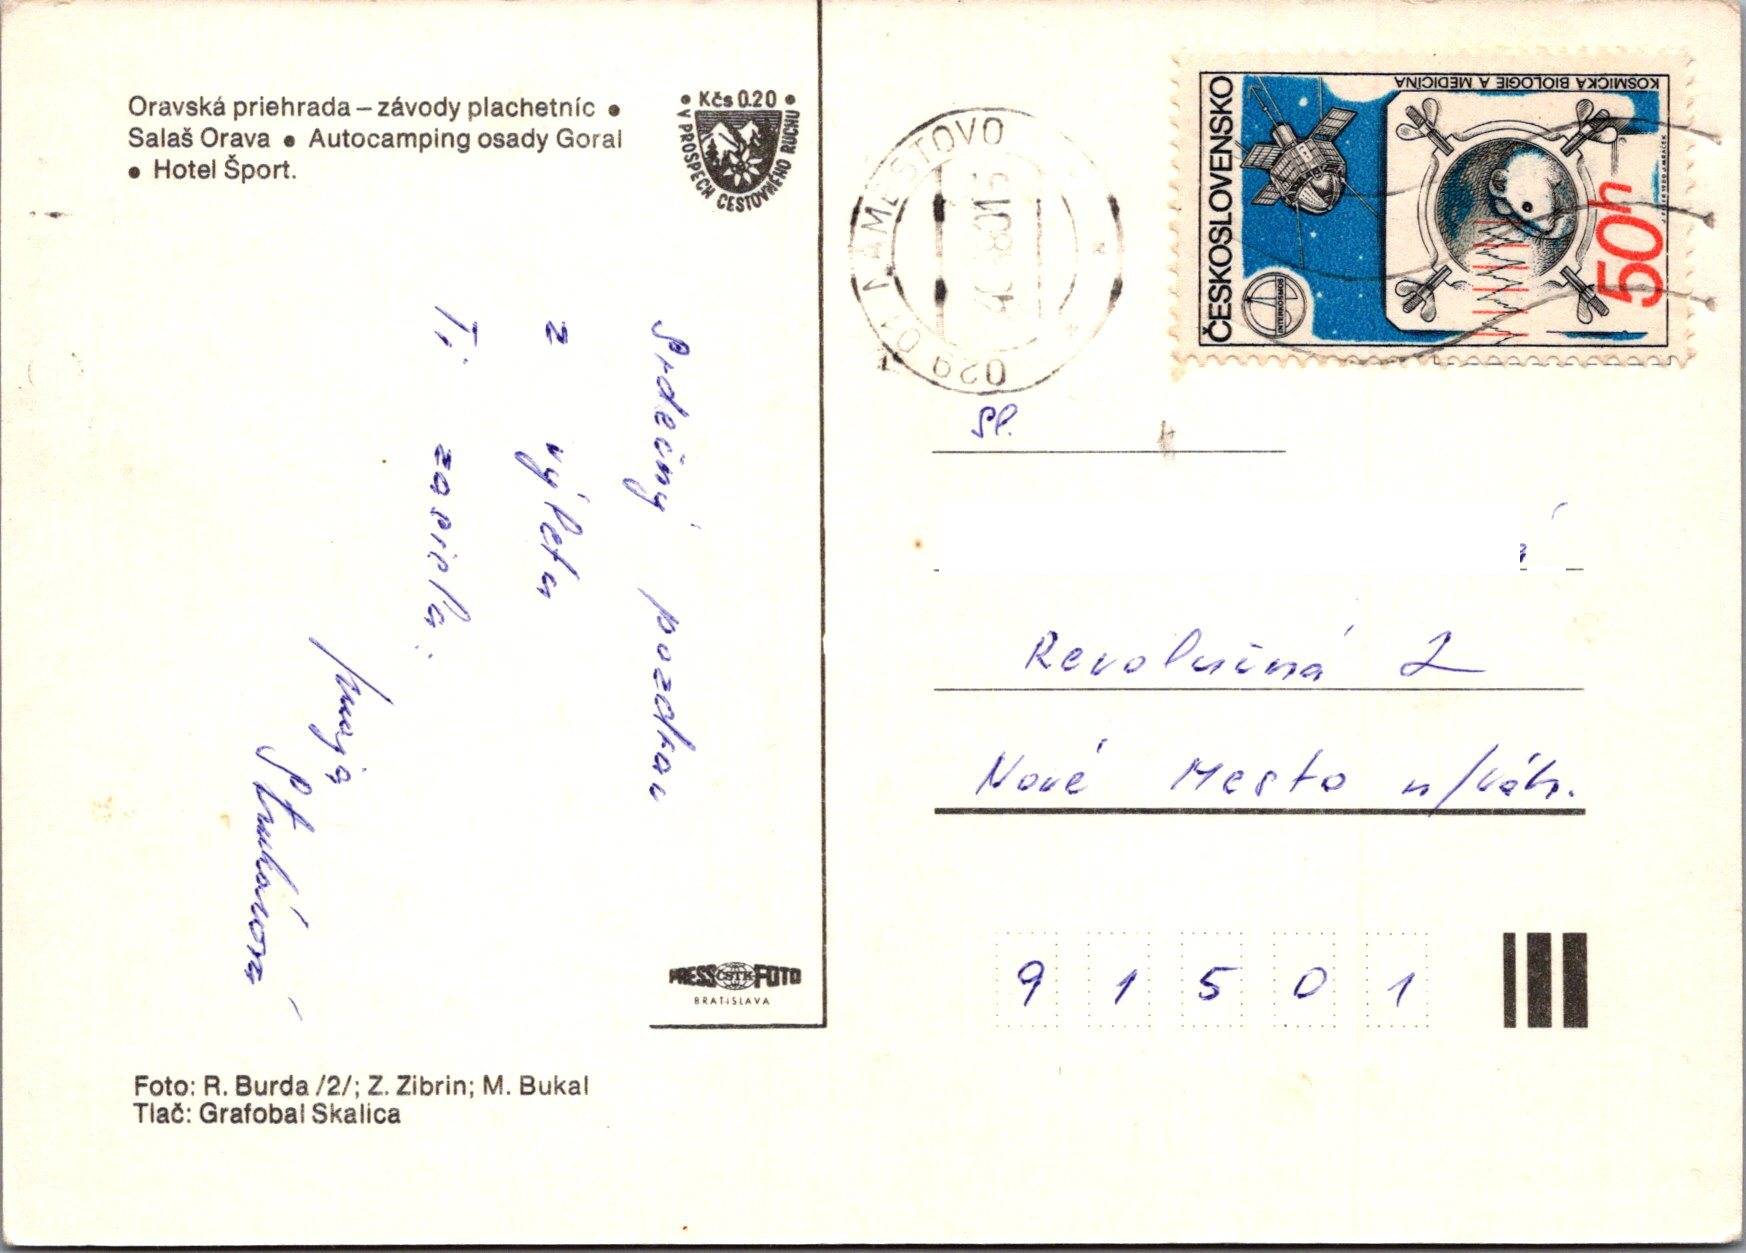 Oravská priehrada – závody plachetníc •
Salaš Orava • Autocamping osady Goral
• Hotel Šport.
• Kčs 0.20 •
V PROSPECH CESTOVNÉHO RUCHU
Srdečný pozdrav
z výleta
Ti zasiela:
PRESS ČSTK FOTO
BRATISLAVA
Foto: R. Burda /2/; Z. Zibrin; M. Bukal
Tlač: Grafobal Skalica
029 01 NÁMESTOVO
ČESKOSLOVENSKO
KOSMICKÁ BIOLOGIE A MEDICÍNA
INTERKOSMOS
50h
Sl.
Revolučná 2
Nové Mesto n/Váh.
9 1 5 0 1